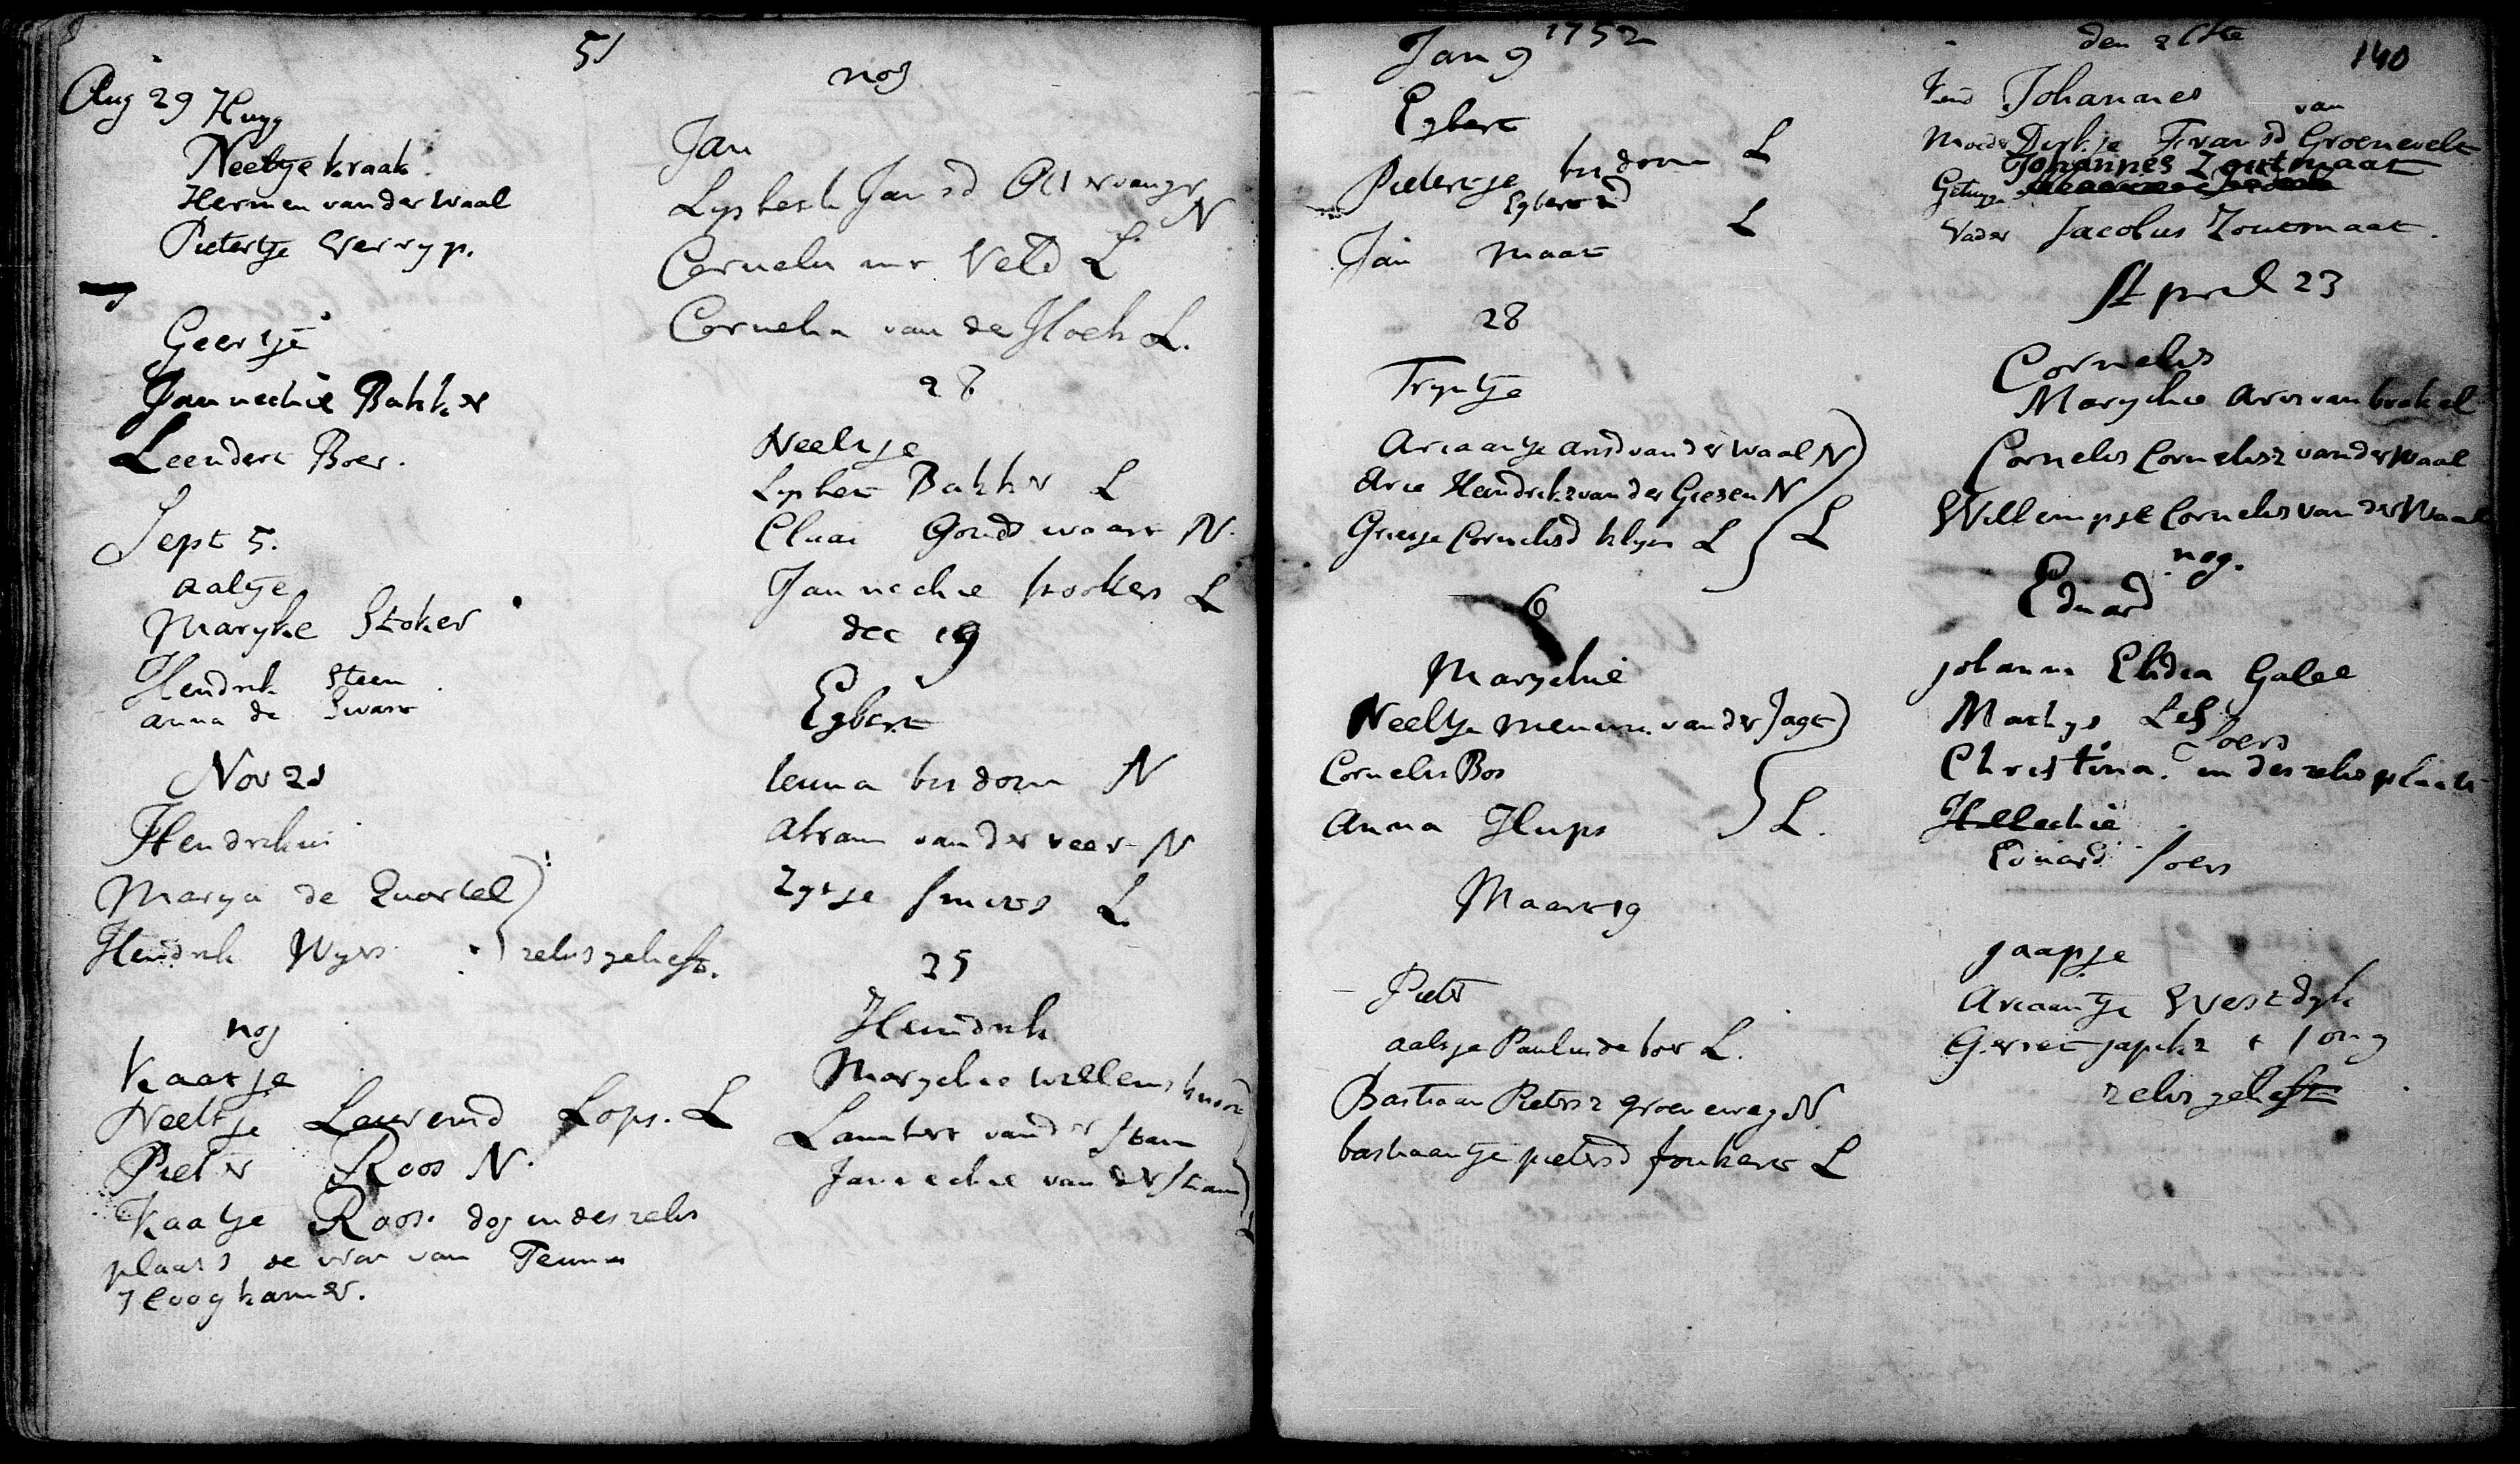 51
Aug 29 Huyg
Neeltje kraak
Hermen van der Waal
Pietertje Verryp.
Geertje
Jannechie Bakker
Leendert Boer.
Sept 5.
aaltje
Maryke Stoker
Hendrik Steen
anna de Swart
Nov 21
Hendrikus
Marya de Quartel
Hendrik Wyers zelvs geheft.
nog
Kaatje
Neeltje Lops. L
Pieter Roos N.
Kaatje Roos. dog in des zelvs
plaats de van Teunis
Hooghamer.
nog
Jan
Lysbeth Jansd N
Cornelis Veld L
Cornelia van de Hoek L.
28
Neeltje
Lysbet Bakker L
Claas Goudswaart N.
Jannechie L
dec 19
Egbert
teuna busdom N
abram van der veer N
Zytje L
25
Hendrik
Marychie willems
Lambert van der Stam
Jannechie van der Stam
L
Jan 9 1752
Egbert
Pietertje busdom L
Egbertsd
Jan Maat L
28
Tryntje
Ariaantje arisd van der Waal N
Arie Hendriksz van der Giesen N
Grietje Cornelisd klyn L L
6
Marychie
Neeltje van der Jagt
Cornelis Bos
Anna Hups L.
Maart 19
Pieter
aaltje Paulus de bor L.
Bastiaan Pietersz groeneweg N.
bastiaantje pietersd Jonkers L
140
Kind Johannes
van
Moeder Dirkje Fransd Groenevelt
Johannes Zoutmaat
Getuyge
Vader Jacobus Zoutmaat.
April 23
Cornelis
Marychie Aris van brakel
Cornelis Cornelisz van der Waal
Willempje Cornelis van der Waal
nog.
Eduard
johanna Elidia Galee
Mathys Les
Christina Soers in des zelvs plaats
Hillechie
Eduard Soers
jaapje
Ariaantje Westdyk
Gerret japikz t Jong
zelvs geheft